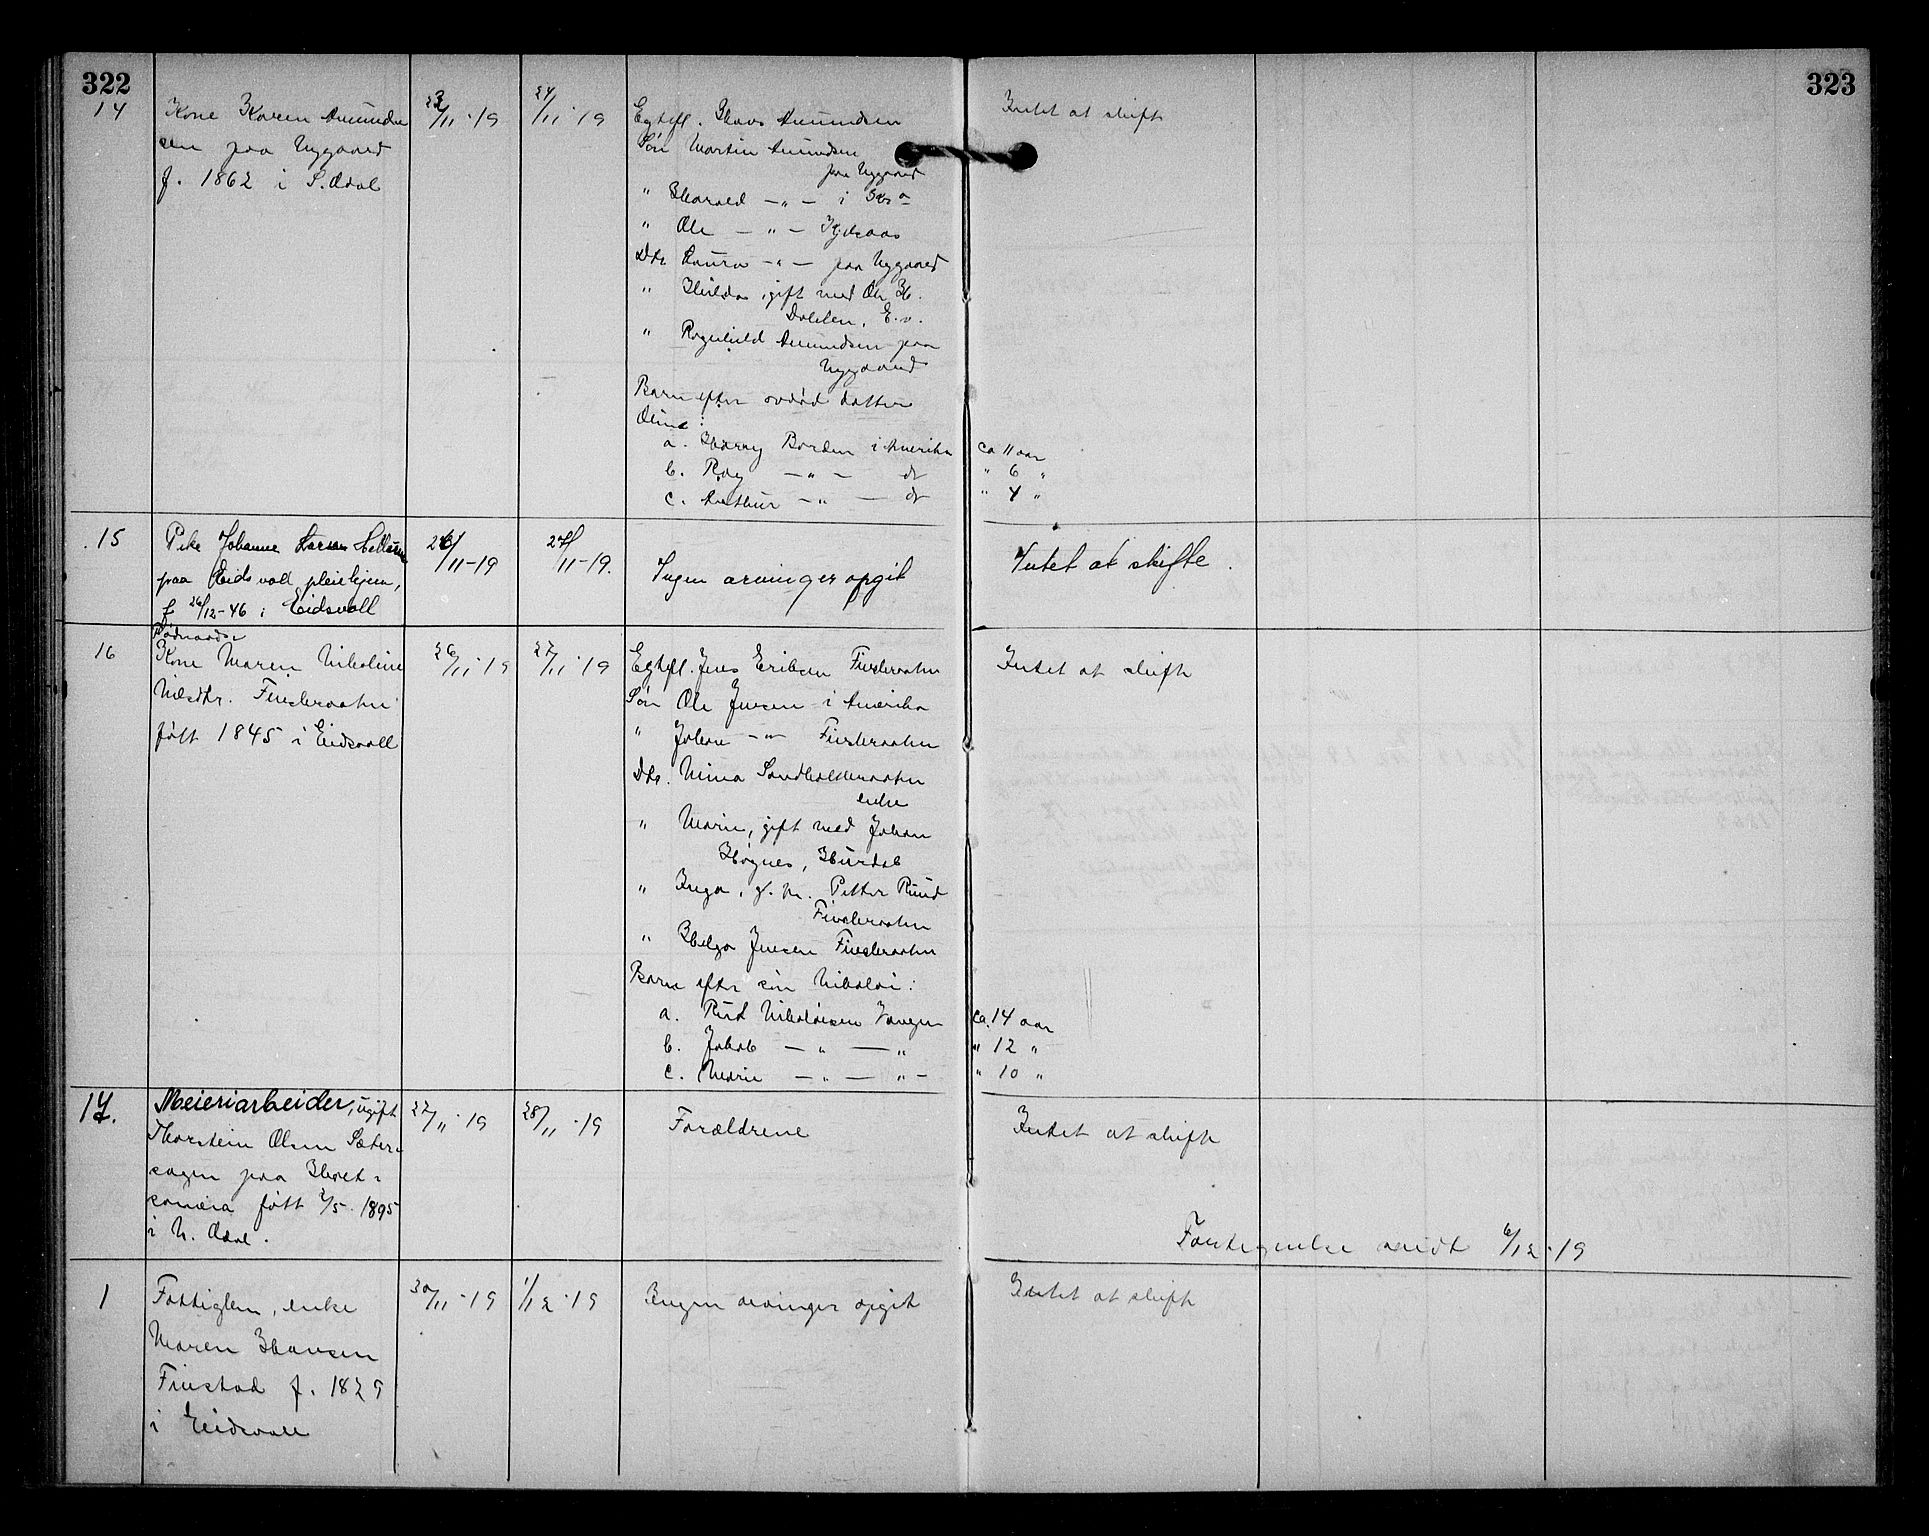 322
323
14
Kone Karen Amundsen
sen paa Nygaard
f. 1862 i S. Odal
23/11-19
24/11-19
Egtefl. Hans Amundsen
Søn Martin Amundsen
paa Nygaard
" Harald — " — i
" Ole — " —
Dtr. Laura — " — paa Nygaard
" Hilda, gift med Ole H.
Dahlen, E.v.
" Ragnhild Amundsen paa
Nygaard
Barn efter avdød datter
Oline:
a. Harry Borden i Amerika
b. Roy — " — do
c. Arthur — " — do
Intet at skifte
ca 11 aar
" 6 "
" 4 "
15
Pike Johanne Larsen
paa Eidsvoll pleiehjem,
f 26/12-46 i Eidsvoll
26/11-19
27/11-19.
Ingen arvinger opgit
Intet at skifte.
16
Kone Maren Nikoline
Nilsdtr. Finsleraaten
født 1845 i Eidsvoll
26/11-19
27/11-19
Egtefl. Jens Eriksen Finsleraaten
Søn Ole Jensen i Amerika
" Johan — " — Finsleraaten
Dtr. Mina Sandholteraaten
enke
" Marie, gift med Johan
Høgnes, Hurdal
" Inga, g. m. Petter Ruud
Finsleraaten
" Helga Jensen Finsleraaten
Barn efter søn Nikolai:
a. Rut Nikolaisen Vangen
b. Jakob — " — "
c. Marie — " — " —
Intet at skifte
ca. 14 aar
" 12 "
" 10 "
17.
Meieriarbeider, ugift
Thorstein Olsen Sæter-
sagen paa
født 2/5-1895
i N. Odal.
27/11-19
28/11-19
Forældrene
Intet at skifte
Fortegnelse sendt 6/12-19
1
Fattiglem, enke
Maren Hansen
Finstad f. 1829
i Eidsvoll
30/11-19
1/12-19
Ingen arvinger opgit
Intet at skifte